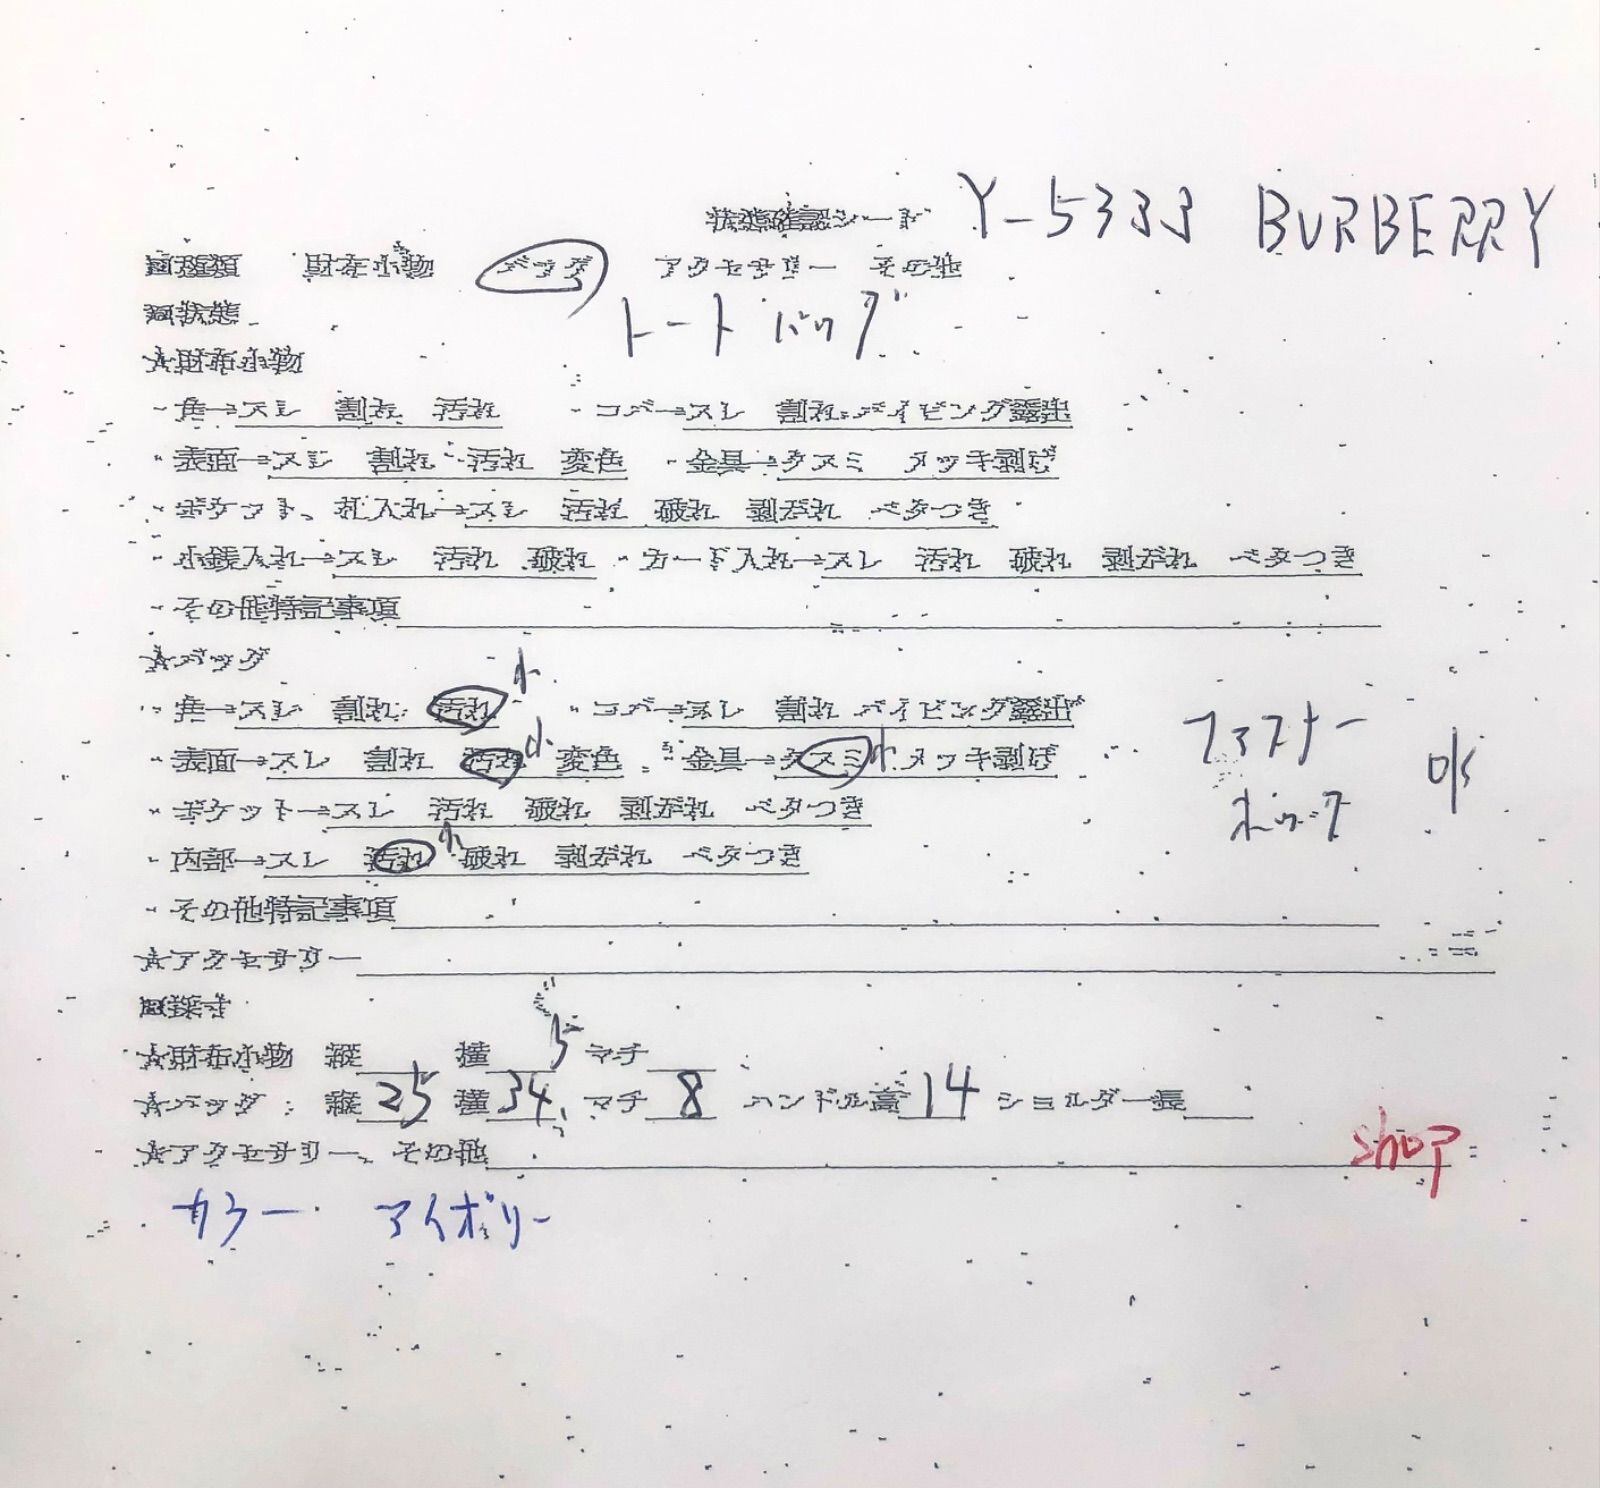 状態確認シート Y-5333 BURBERRY
種類 財布小物 バッグ アクセサリー その他
状態 トートバッグ
★財布小物
・角→スレ 割れ 汚れ ・コバ→スレ 割れ パイピング露出
・表面→スレ 割れ 汚れ 変色 ・金具→クスミ メッキ剥げ
・ポケット、札入れ→スレ 汚れ 破れ 剥がれ ベタつき
・小銭入れ→スレ 汚れ 破れ ・カード入れ→スレ 汚れ 破れ 剥がれ ベタつき
・その他特記事項
★バッグ
・角→スレ 割れ 汚れ 小 ・コバ→スレ 割れ パイピング露出
・表面→スレ 割れ 汚れ 小 変色 ・金具→クスミ 小 メッキ剥げ ファスナー
・ポケット→スレ 汚れ 破れ 剥がれ ベタつき ホック ok
・内部→スレ 汚れ 小 破れ 剥がれ ベタつき
・その他特記事項
★アクセサリー
採寸
★財布小物 縦 横 マチ
★バッグ 縦 25 横 34.5 マチ 8 ハンドル高 14 ショルダー長
★アクセサリー、その他 shop
カラー アイボリー